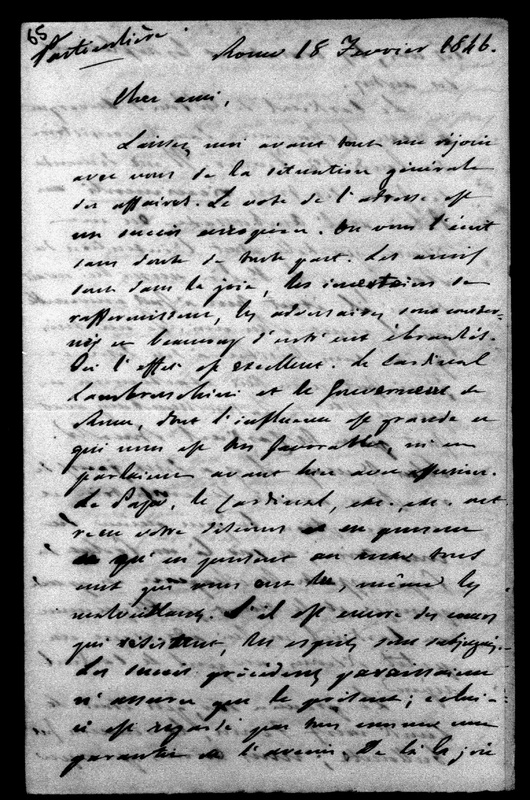 65
Particulière
Rome 18 Fevrier 1846.
Cher ami,
Laissez moi avant tout me réjouir
avec vous de la situation générale
des affaires. Le vote de l'adresse est
un succès européen. On vous l'écrit
sans doute de toute part. Les amis
sont dans la joie, les incertains se
raffermissent, les adversaires sont conster-
nés et beaucoup d'entr'eux ébranlés.
Ici l'effet est excellent. Le Cardinal
Lambruschini et le Gouverneur de
Rome, dont l'influence est grande et
qui nous est très favorable, m'en
parlaient avant hier avec effusion.
Le Pape, le Cardinal, etc. etc. ont
reçu votre discours et en pensent
ce qu'en pensent au reste tous
ceux qui vous ont lu, même les
malveillans. S'il est encore des cœurs
qui résistent, les esprits sont subjugués.
Les succès précédens paraissaient
n'assurer que le présent; celui-
ci est regardé par tous comme une
garantie de l'avenir. De là la joie